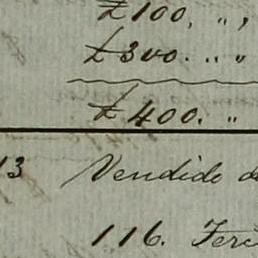 £100. „ „
£300. „ „
£400. „
13 Vendido d
116. Ferr